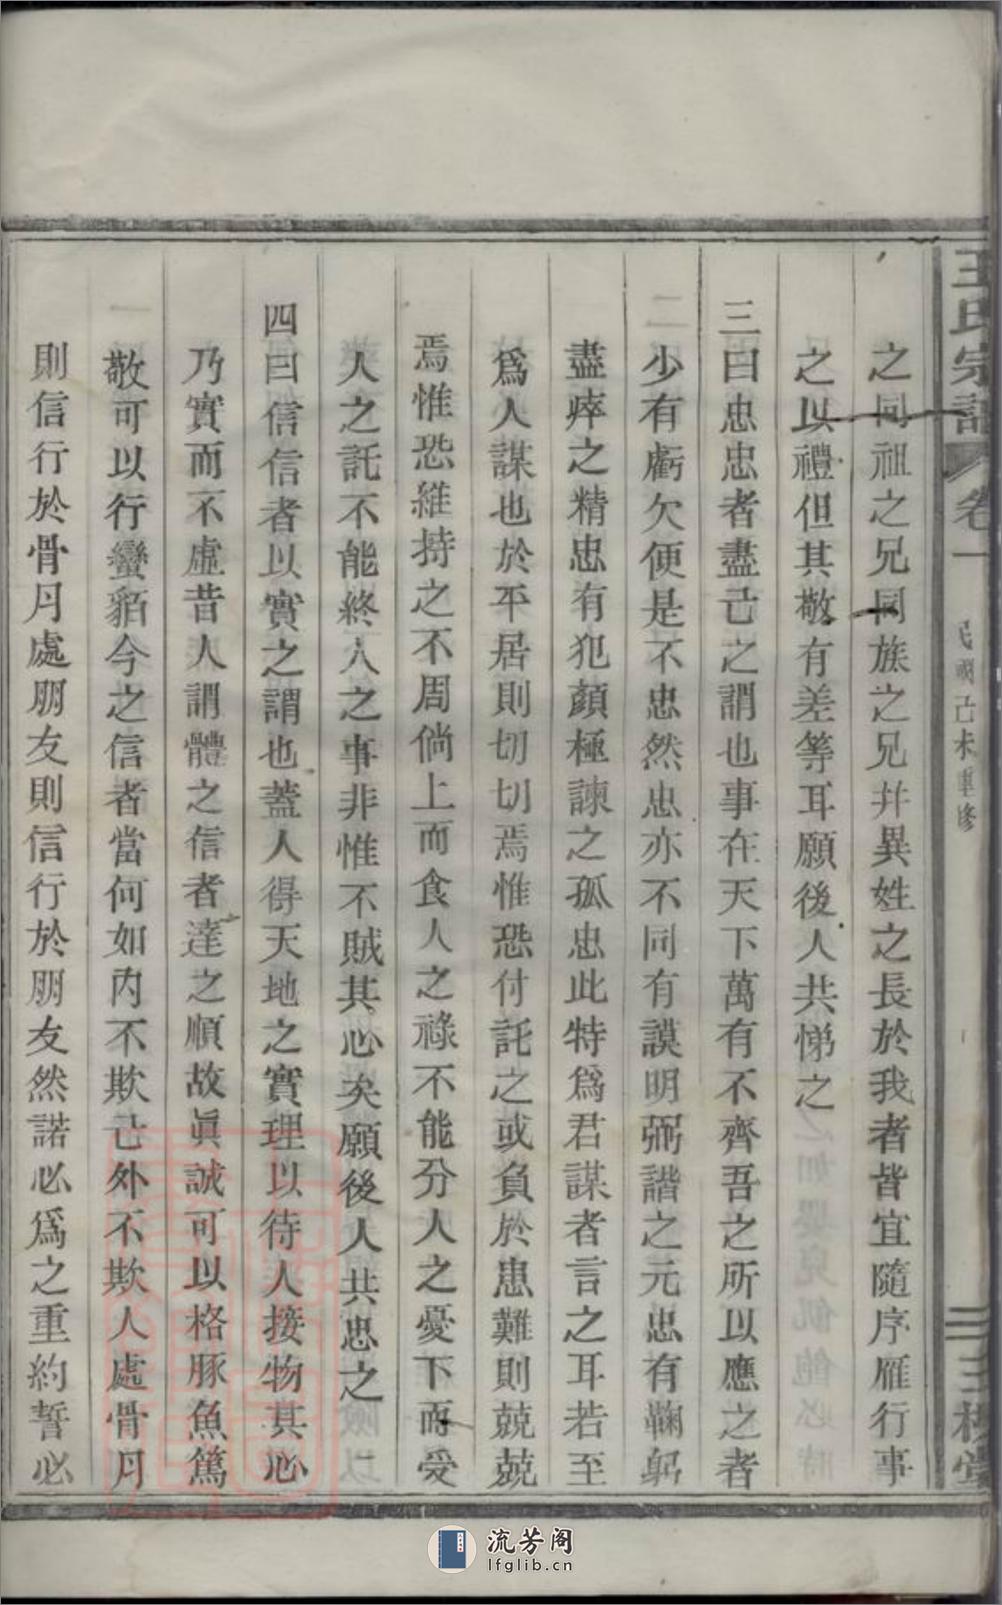 王氏宗譜 卷一 民國己未重修 三 三槐堂
之同祖之兄同族之兄幷異姓之長於我者皆宜隨序雁行事
之以禮但其敬有差等耳願後人共悌之
三曰忠忠者盡己之謂也事在天下萬有不齊吾之所以應之者
少有虧欠便是不忠然忠亦不同有謨明弼諧之元忠有鞠躬
盡瘁之精忠有犯顏極諫之孤忠此特爲君謀者言之耳若至
爲人謀也於平居則切切焉惟恐付託之或負於患難則兢兢
焉惟恐維持之不周倘上而食人之祿不能分人之憂下而受
人之託不能終人之事非惟不賊其心矣願後人共忠之
四曰信信者以實之謂也蓋人得天地之實理以待人接物其心
乃實而不虛昔人謂體之信者達之順故眞誠可以格豚魚篤
敬可以行蠻貊今之信者當何如內不欺己外不欺人處骨月
則信行於骨月處朋友則信行於朋友然諾必爲之重約誓必
流芳阁
lfglib.cn